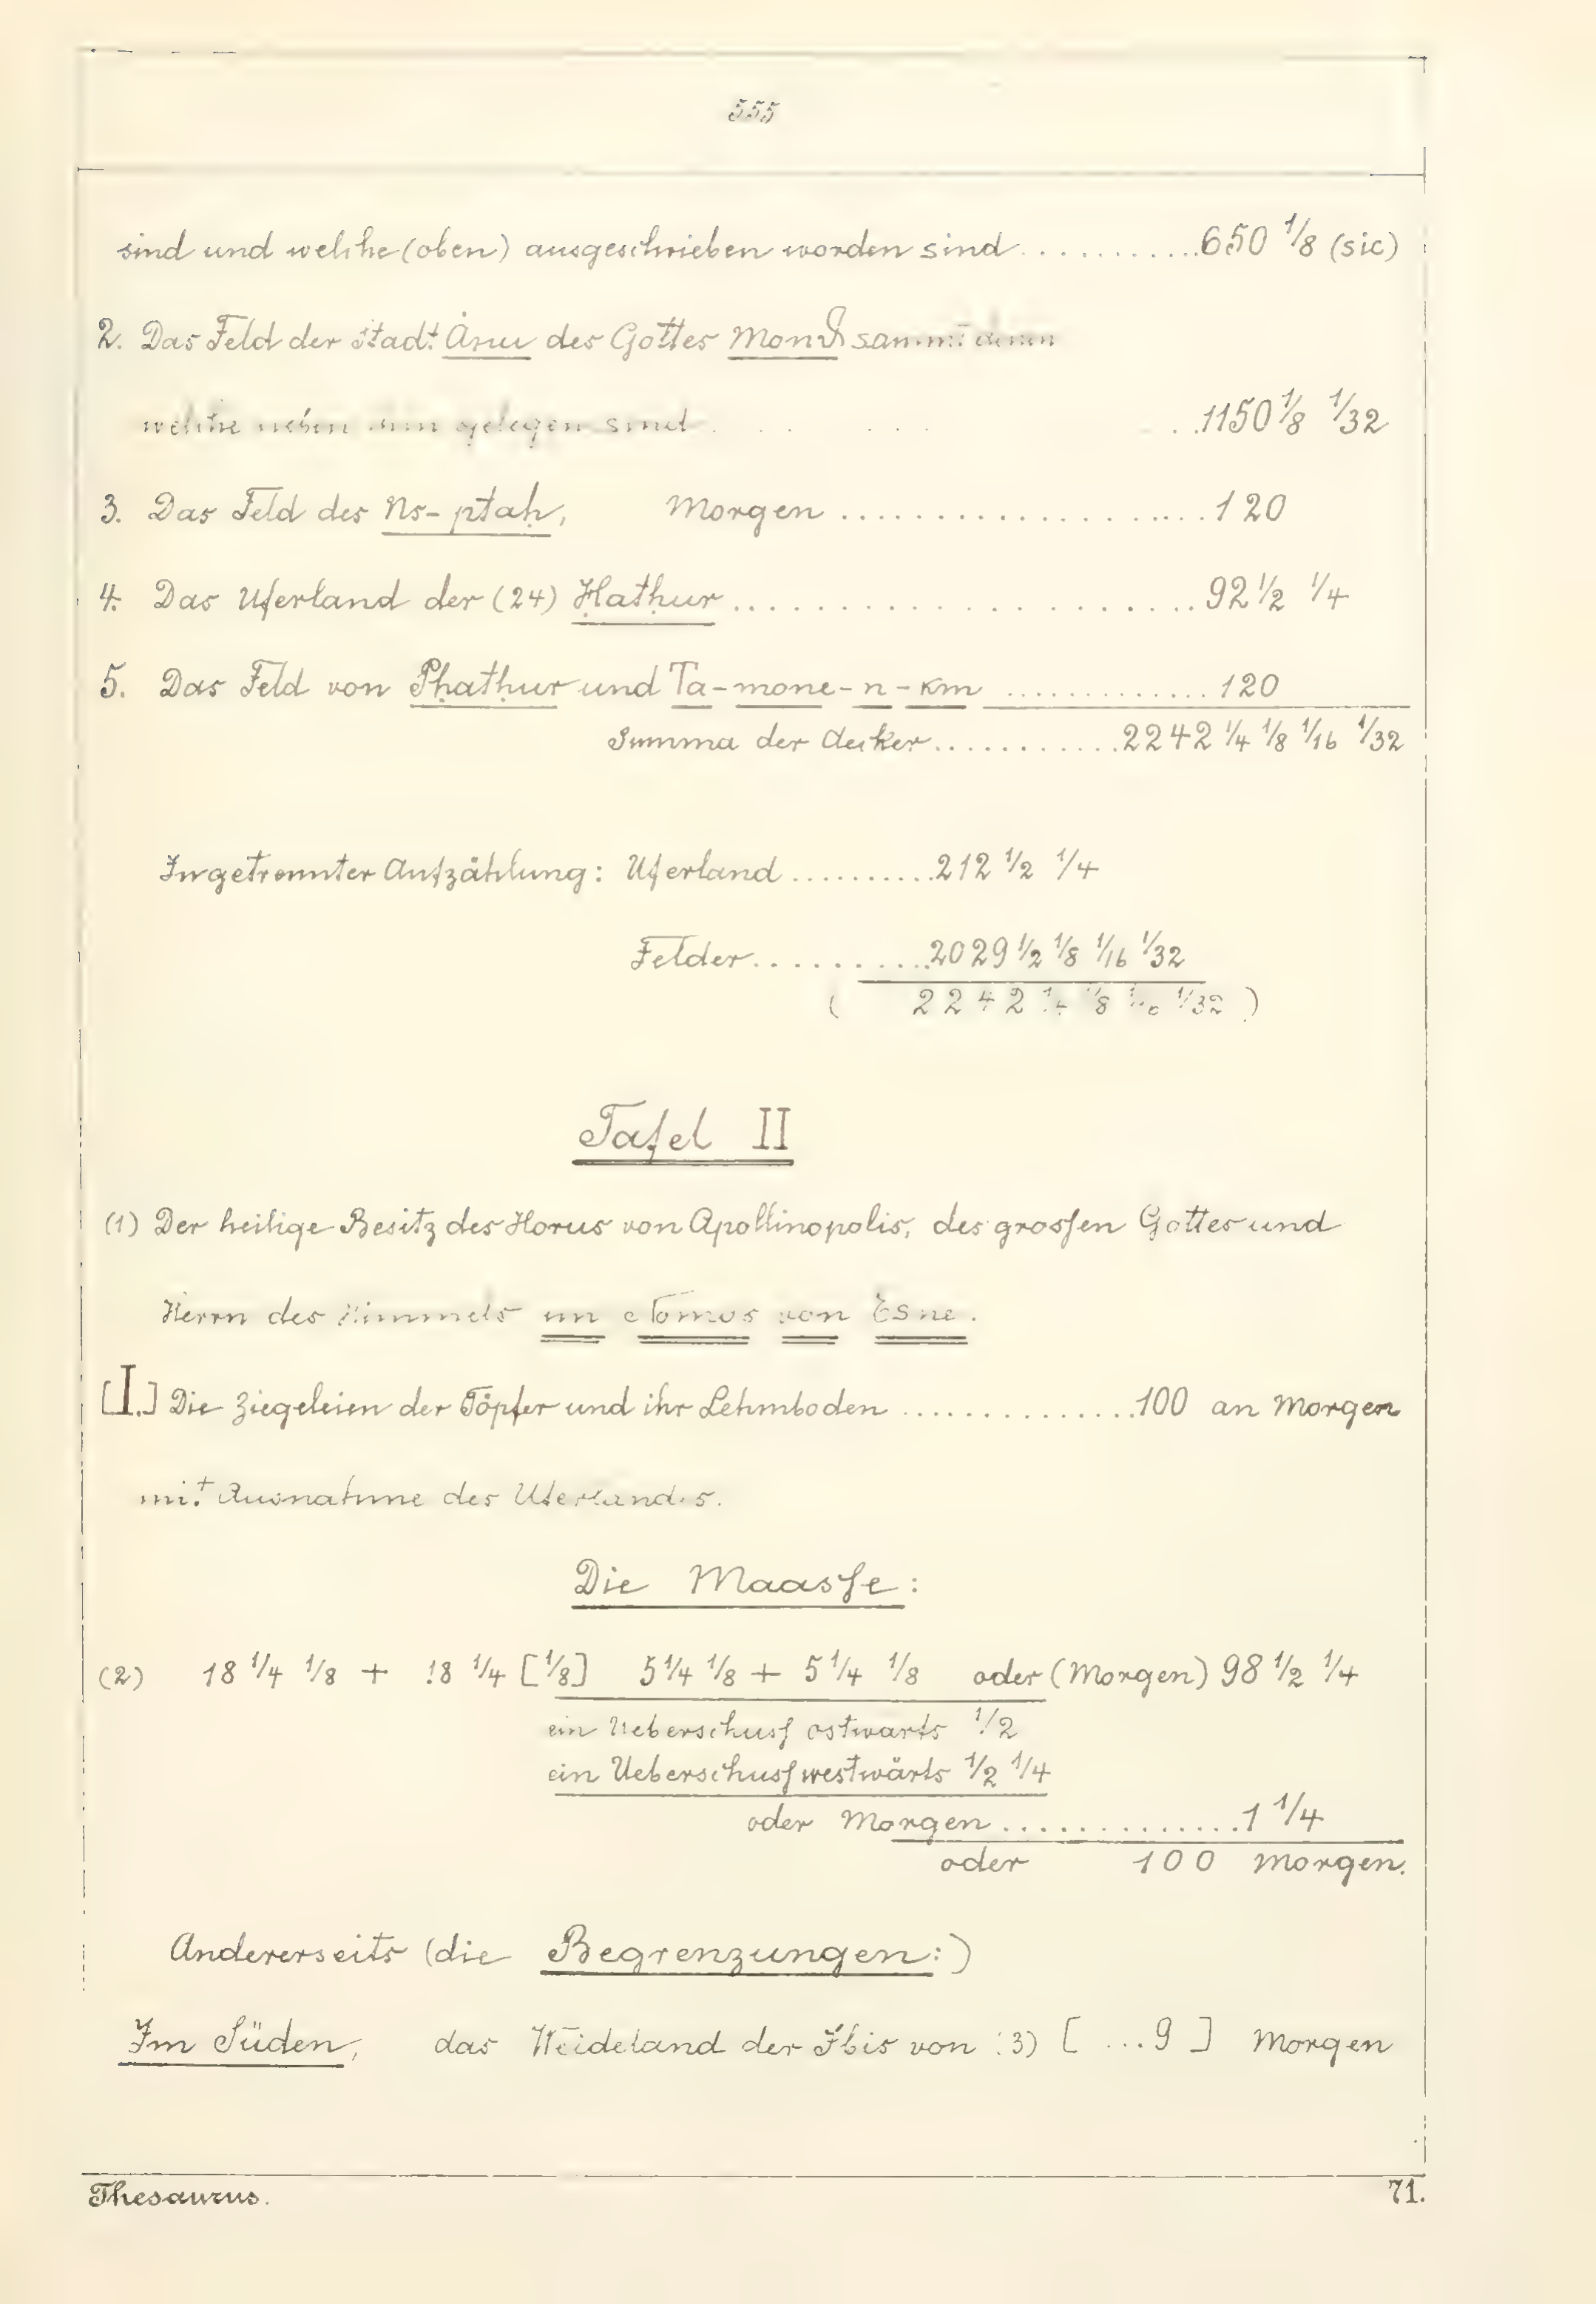 555
sind und welche (oben) ausgeschrieben worden sind............650 1/8 (sic)
2. Das Feld der Stadt Ȧnu des Gottes sammt denen
welche neben ihm gelegen sind . . . . . . ..1150 1/8 1/32
3. Das Feld des Ns-ptaḥ, Morgen ....................120
4. Das Uferland der (24) Ḥatḥur....................92 1/2 1/4
5. Das Feld von Pḥatḥur und Ta-mone-n-Km ..............120
Summa der Aecker...........2242 1/4 1/8 1/16 1/32
In getrennter Aufzählung: Uferland ..........212 1/2 1/4
Felder..........2029 1/2 1/8 1/16 1/32
( 2242 1/4 1/8 1/16 1/32 )
Tafel II
(1) Der heilige Besitz des Horus von Apollinopolis, des grossen Gottes und
Herrn des Himmels im Nomos von Esne.
[I.] Die Ziegeleien der Töpfer und ihr Lehmboden ...............100 an Morgen
mit Ausnahme des Uferlandes.
Die Maasse:
(2) 18 1/4 1/8 + 18 1/4 [1/8] 5 1/4 1/8 + 5 1/4 1/8 oder (Morgen) 98 1/2 1/4
ein Ueberschuss ostwärts 1/2
ein Ueberschuss westwärts 1/2 1/4
oder Morgen ...............1 1/4
oder 100 Morgen.
Andererseits (die Begrenzungen:)
Im Süden, das Weideland der Ibis von (3) [ ...9 ] Morgen
Thesaurus. 71.